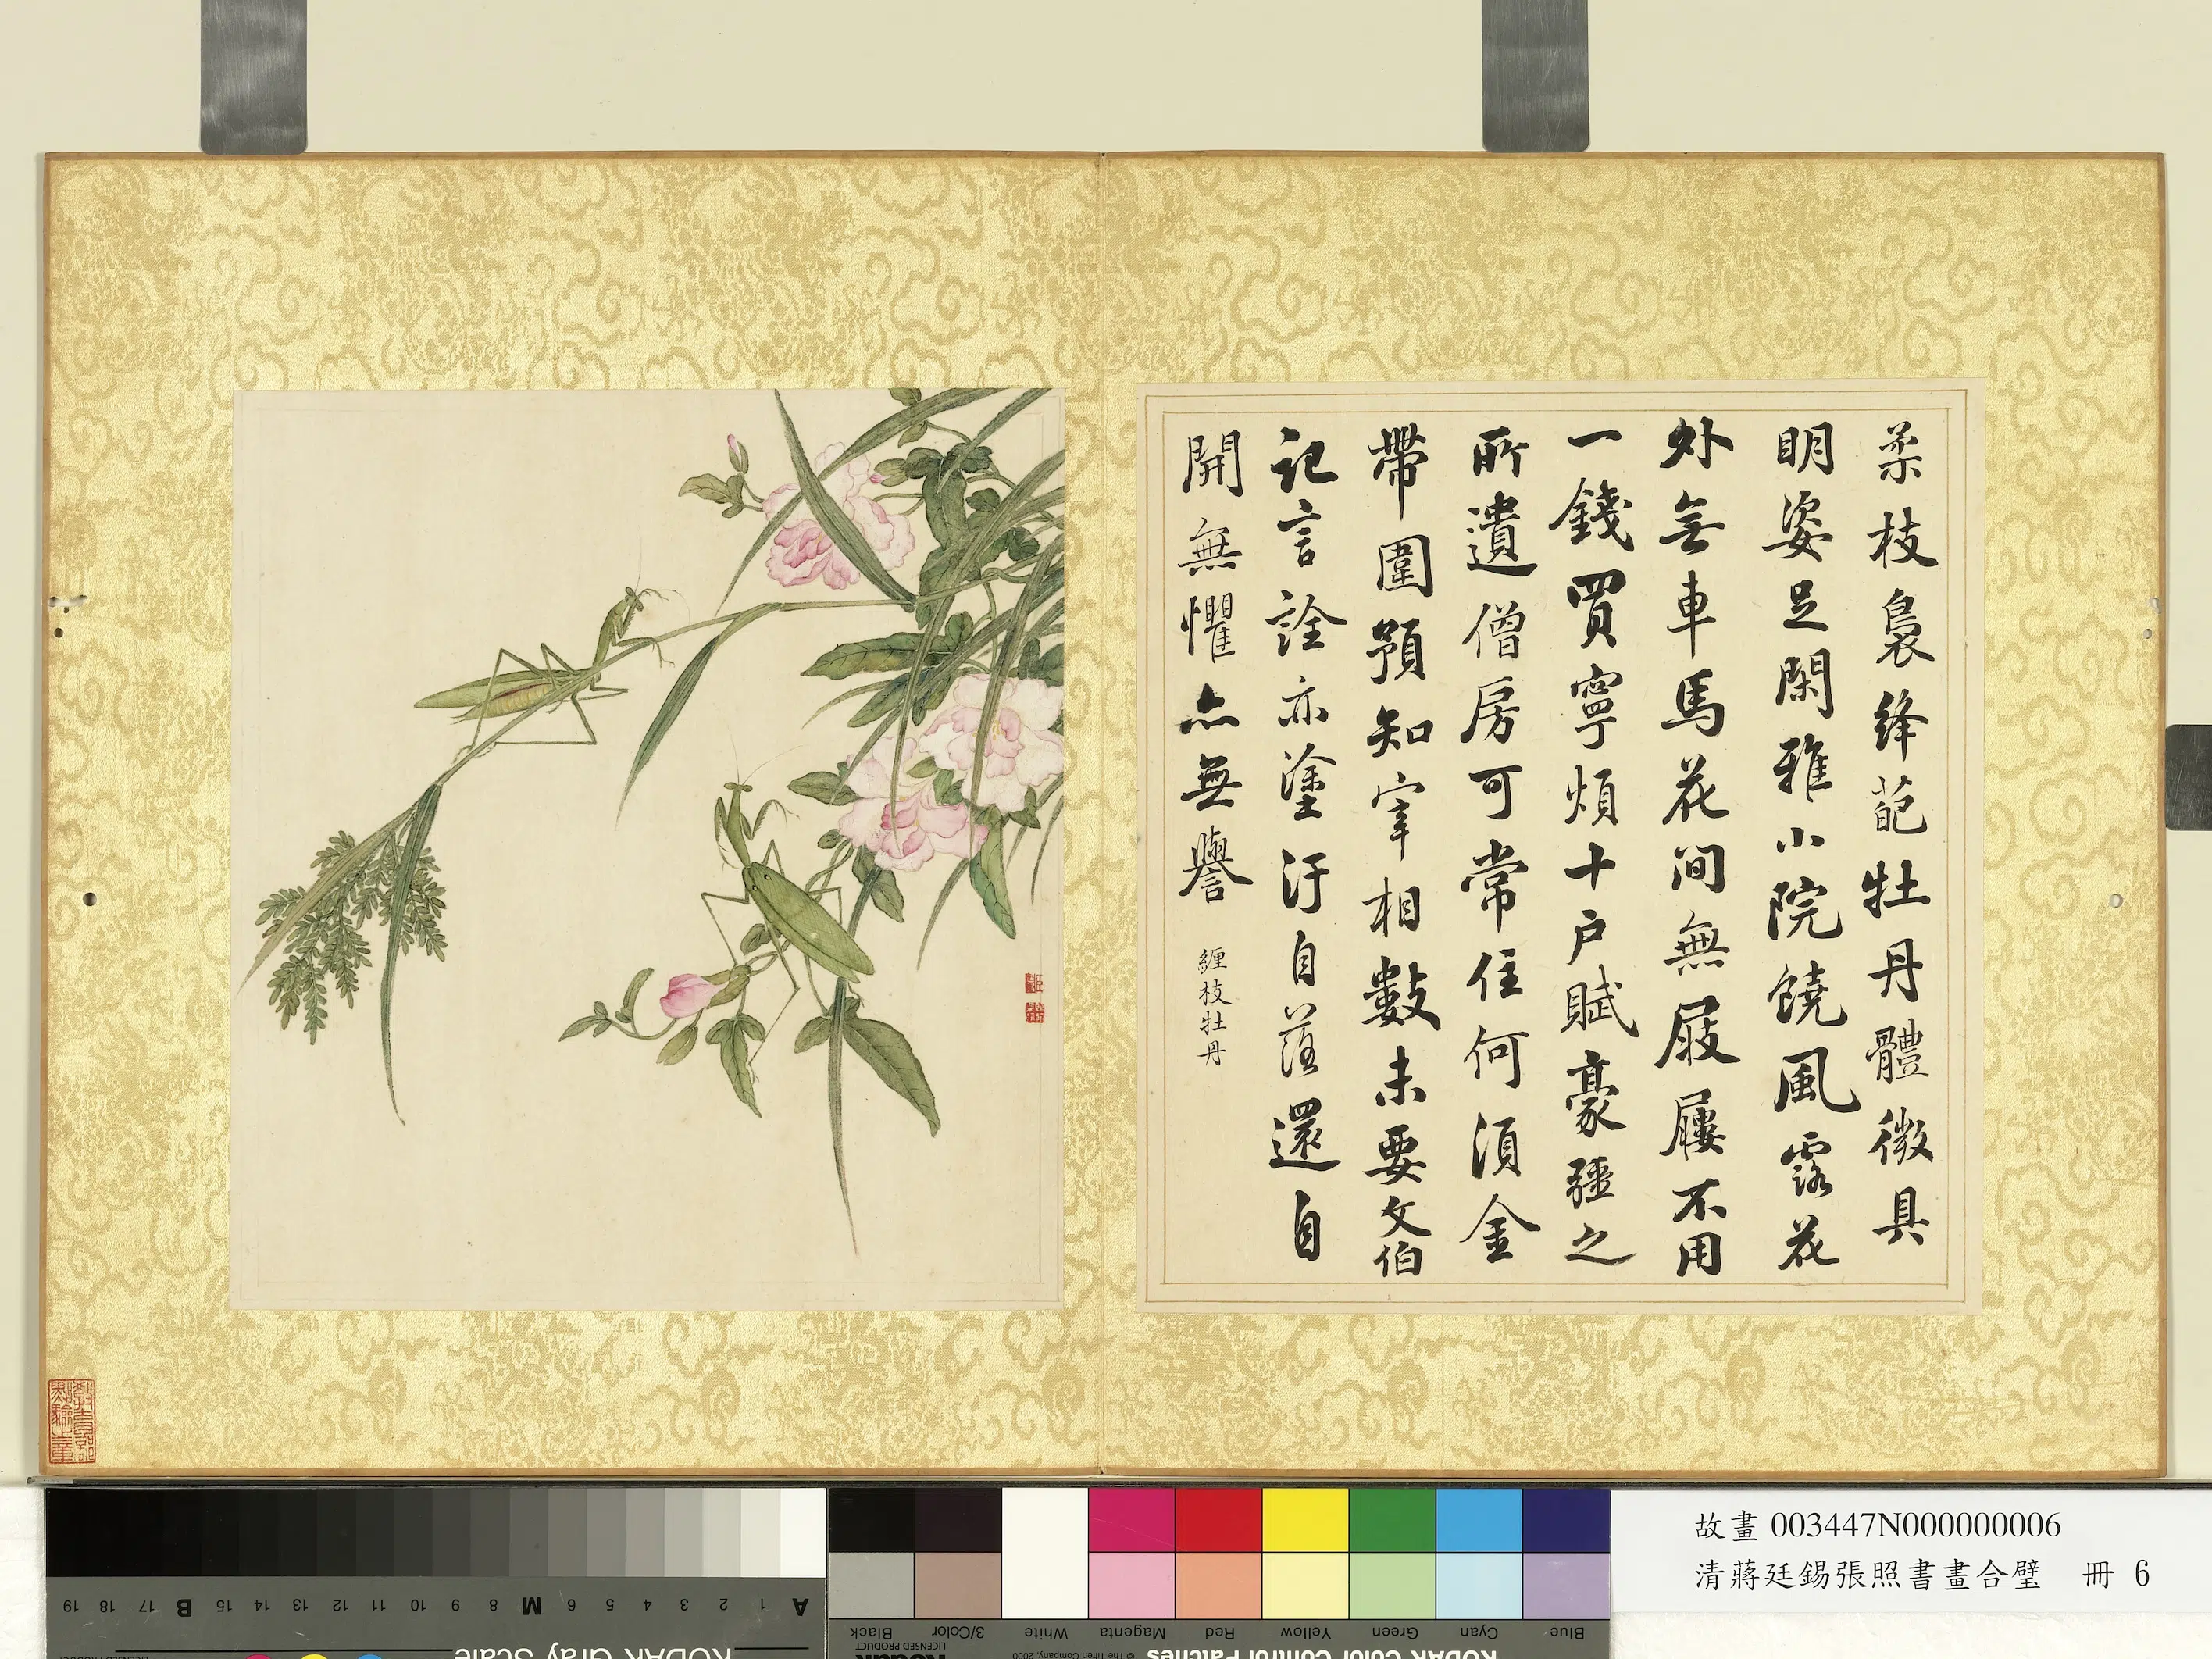 柔枝裊絳葩牡丹體微具
明姿足閑雅小院饒風露花
外無車馬花間無屐屨不用
一錢買寧煩十戶賦豪彊之
所遺僧房可常住何須金
帶圍預知宰相數未要文伯
記言詮亦塗汙自落還自
開無懼亦無譽
纏枝牡丹
故畫 003447N000000006
清蔣廷錫張照書畫合璧 冊 6
A 1 2 3 4 5 6 M 8 9 10 11 12 13 14 15 B 17 18 19
Blue Cyan Green Yellow Red Magenta White 3/Color Black
KODAK Color Control Patches
© The Tiffen Company, 2000
LICENSED PRODUCT
KODAK Gray Scale